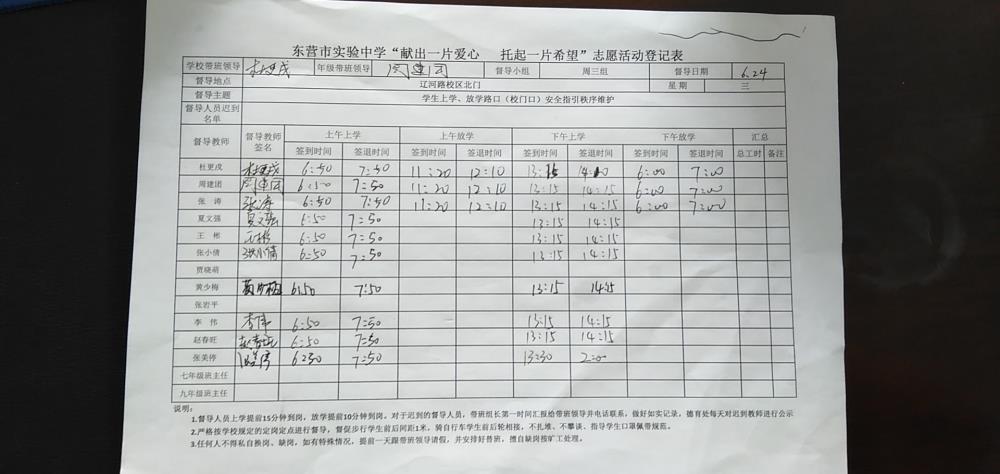 东营市实验中学“献出一片爱心 托起一片希望”志愿活动登记表
学校带班领导 杜更戌 年级带班领导 周建团 督导小组 周三组 督导日期 6.24
督导地点 辽河路校区北门 星期 三
督导主题 学生上学、放学路口（校门口）安全指引秩序维护
督导人员迟到名单
督导教师 督导教师签名 上午上学 上午放学 下午上学 下午放学 汇总
签到时间 签退时间 签到时间 签退时间 签到时间 签退时间 签到时间 签退时间 总工时 备注
杜更戌 杜更戌 6:50 7:50 11:20 12:10 13:15 14:10 6:00 7:00
周建团 周建团 6:50 7:50 11:20 12:10 13:15 14:15 6:00 7:00
张 涛 张涛 6:50 7:50 11:20 12:10 13:15 14:15 6:00 7:00
夏文强 夏文强 6:50 7:50 13:15 14:15
王 彬 王彬 6:50 7:50 13:15 14:15
张小倩 张小倩 6:50 7:50 13:15 14:15
贾晓萌
黄少梅 黄少梅 6:50 7:50 13:15 14:15
张岩平
李 伟 李伟 6:50 7:50 13:15 14:15
赵春旺 赵春旺 6:50 7:50 13:15 14:15
张美停 7:50 13:30
七年级班主任
九年级班主任
说明：
1.督导人员上学提前15分钟到岗，放学提前10分钟到岗。对于迟到的督导人员，带班组长第一时间汇报给带班领导并电话联系，做好如实记录，德育处每天对迟到教师进行公示
2.严格按学校规定的定岗定点进行督导，督促步行学生前后间距1米，骑自行车学生前后轮相接，不扎堆、不攀谈、指导学生口罩佩带规范。
3.任何人不得私自换岗、缺岗，如有特殊情况，提前一天跟带班领导请假，并安排好替班，擅自缺岗按旷工处理。